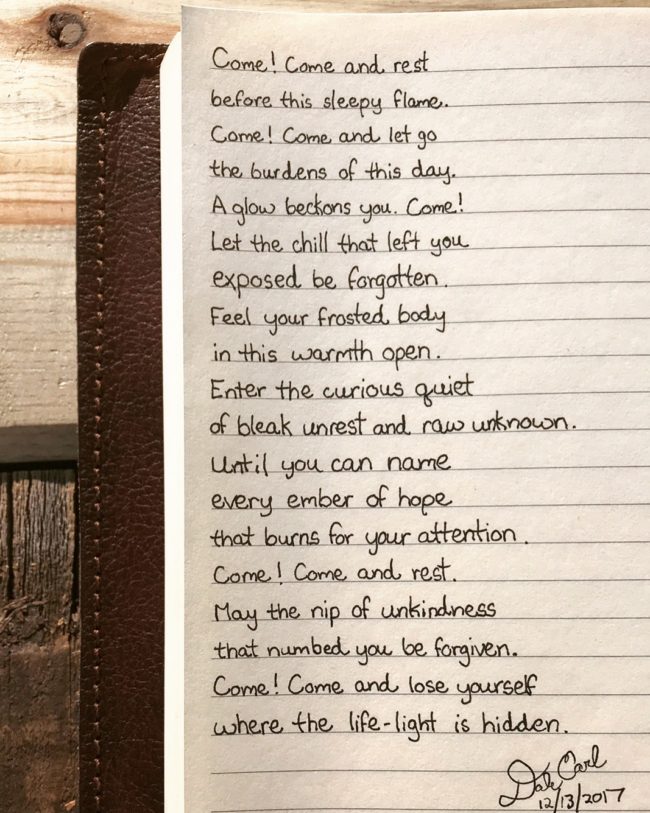 Come! Come and rest
before this sleepy flame.
Come! Come and let go
the burdens of this day.
A glow beckons you. Come!
Let the chill that left you
exposed be forgotten.
Feel your frosted body
in this warmth open.
Enter the curious quiet
of bleak unrest and raw unknown.
Until you can name
every ember of hope
that burns for your attention.
Come! Come and rest.
May the nip of unkindness
that numbed you be forgiven.
Come! Come and lose yourself
where the life-light is hidden.
Dale Carl
12/13/2017